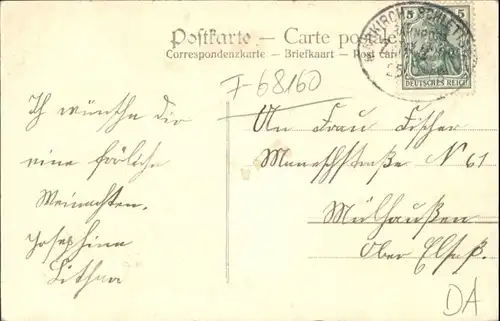 Postkarte — Carte postale
Correspondenzkarte – Briefkaart – Post card
5 5
DEUTSCHES REICH
F-68160
Ich wünsche dir
eine fröliche
Weinachten.
Josephina
An Frau Fischer
N 61
Mülhaußen
Ober Elsaß.
DA